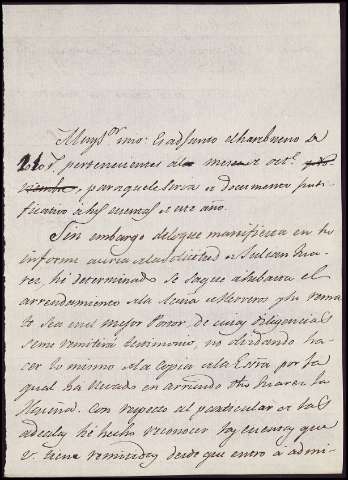 Muy S.or mio: Es adjunto el haberueno de
Vd. pertenecientes al mes de oct.e
, para que le sirva de documento justi-
ficativo a las cuentas de este año.
Sin embargo de lo que manifiesta en su
informe acerca a la solicitud de Julian Sua-
rez, he determinado se saque a subasta el
arrendamiento de la Acña de Herreros y su rema-
te sea en el mejor Postor, de cuias diligencias
seme remitirá testimonio, no olvidando ha-
cer lo mismo de la copia de la Es.ra por la
qual ha llevado en arriendo dho Suarez la
Con respecto al particular de las
he hecho reconocer las cuentas que
V. tiene remitidas desde que entró a admi-